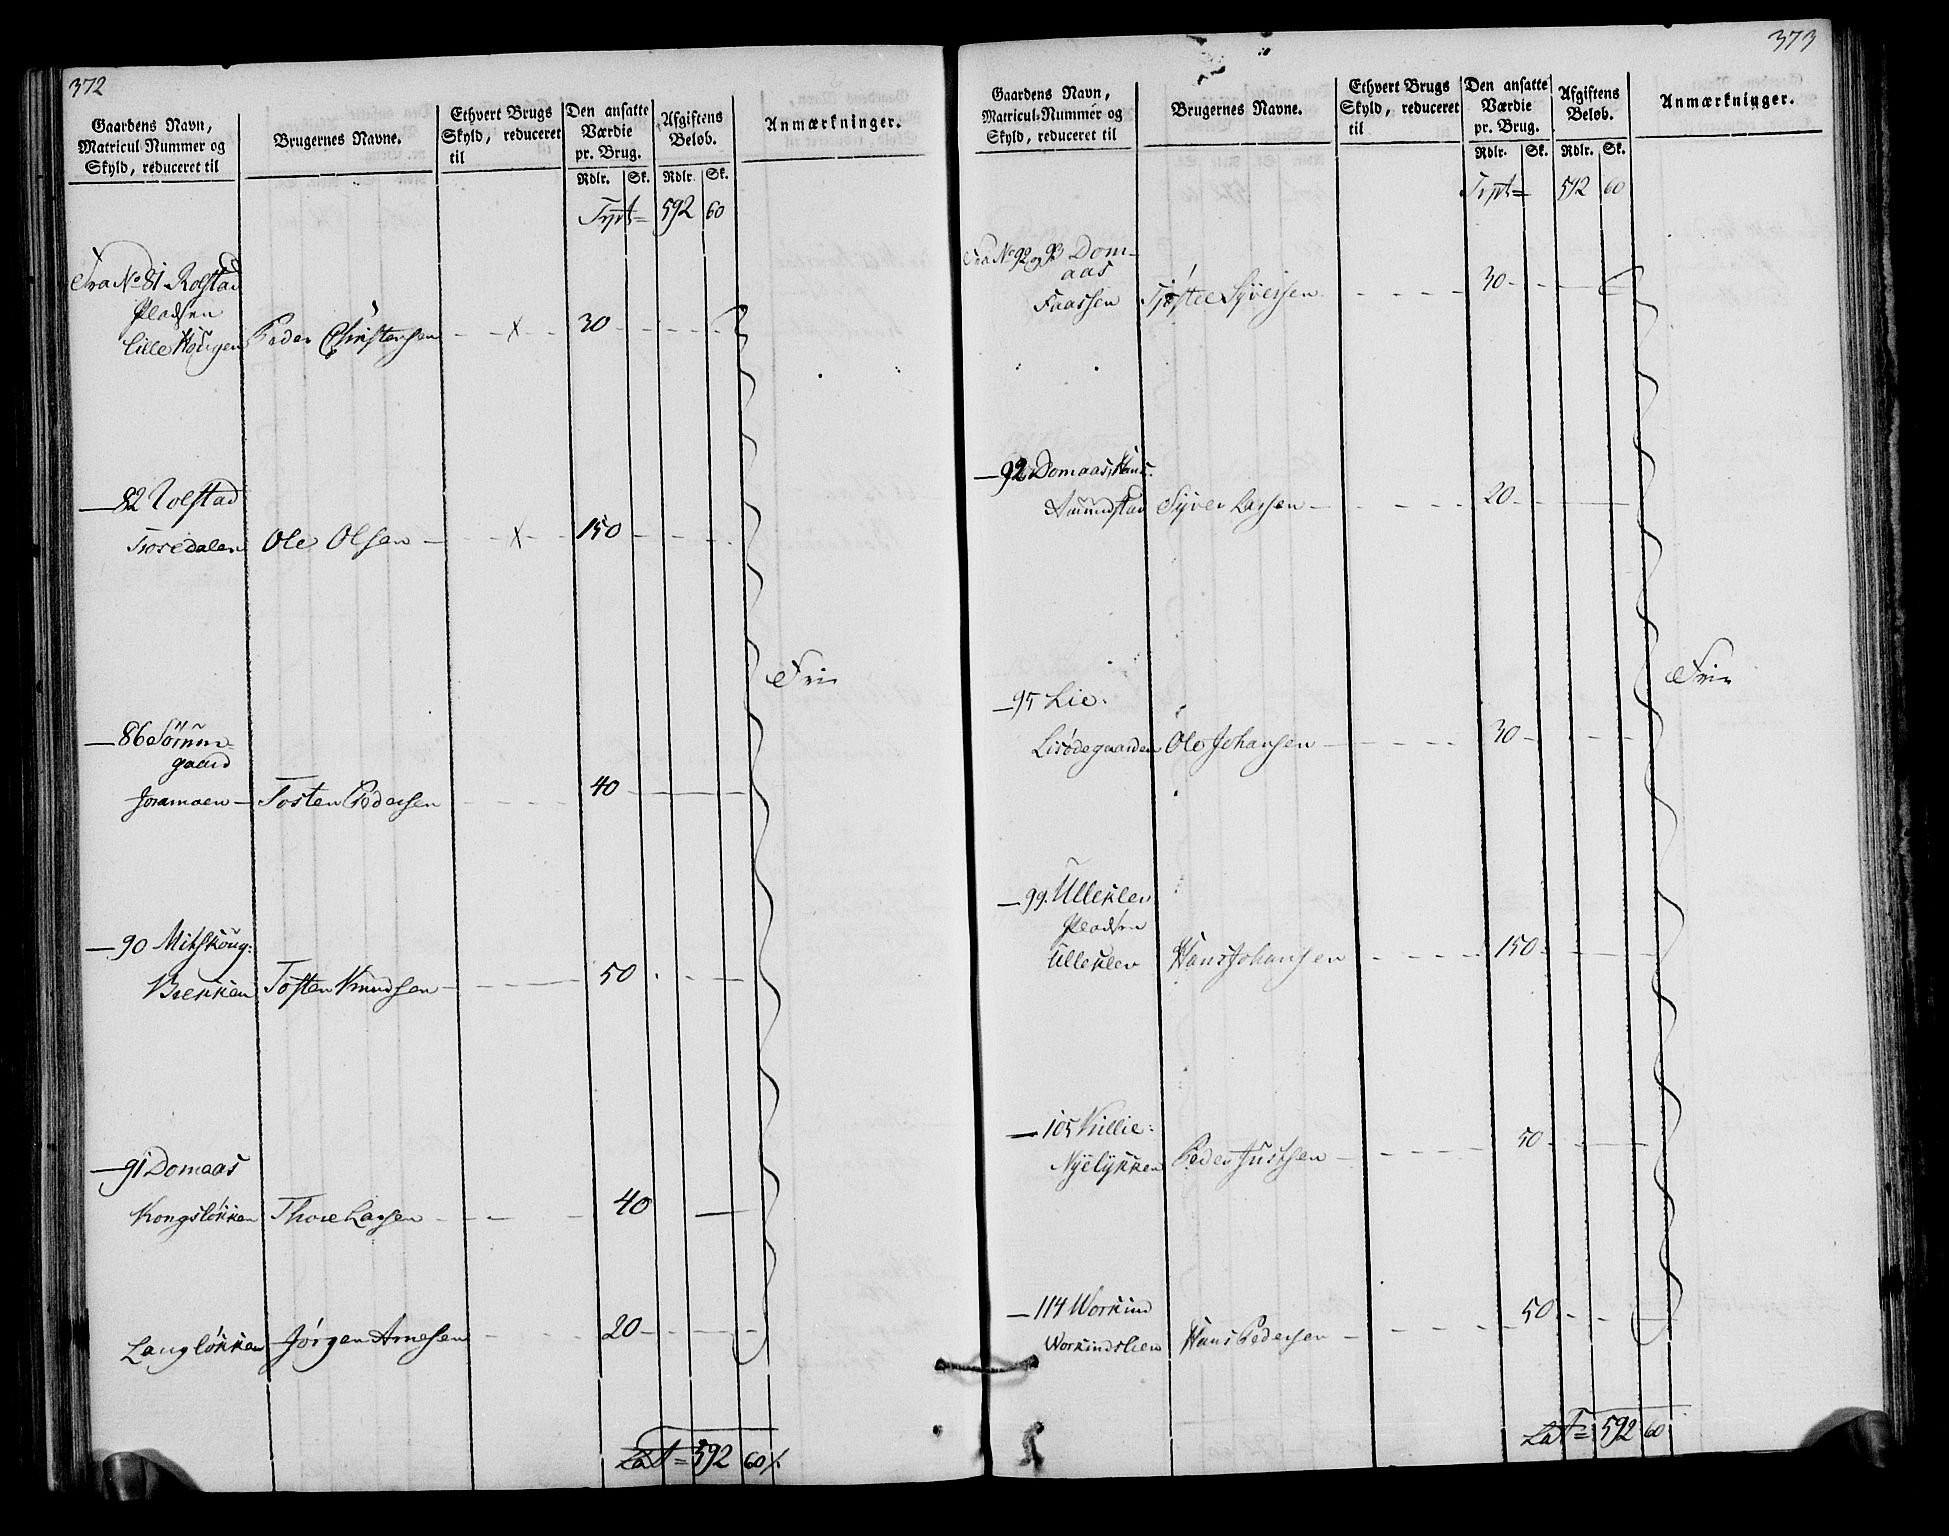 372
Gaardens Navn,
Matricul-Nummer og
Skyld, reduceret til
Brugernes Navne.
Ethvert Brugs
Skyld, reduceret
til
Den ansatte
Værdie
pr. Brug.
Rdlr. Sk.
Afgiftens
Beløb.
Rdlr. Sk.
Anmærkninger.
Trpt = 592 60
Fra No 81 Rolstad
Pladsen
Lille Hougen Peder Christensen - x - 30
82 Rolstad
Trosedalen Ole Olsen - x - 150
Frie
86 Sörum-
gaard
Joramoen - Tosten Pedersen 40
90 Mitskoug:
Brekken Tosten Knudsen 50
91 Domaas
Kongsløkken Thore Larsen 40
Langløkken Jørgen Arnesen 20
Lat = 592 60
373
Gaardens Navn,
Matricul-Nummer og
Skyld, reduceret til
Brugernes Navne.
Ethvert Brugs
Skyld, reduceret
til
Den ansatte
Værdie
pr. Brug.
Rdlr. Sk.
Afgiftens
Beløb.
Rdlr. Sk.
Anmærkninger.
Trpt = 592 60
Fra No 92 og 93 Dom-
aas
Faassen Tjøstel Syversen 30
92 Domaas, Hans
Amundstad Syver Larsen 20
Frie
95 Lie:
Lisødegaarden Ole Johansen 30
99. Ulleklev
Pladsen
Ulleklev Hans Johansen 150
105 Killie:
Nyeløkken Peder Justsen 50
114 Workind
Workindslien Hans Pedersen 50
Lat = 592 60